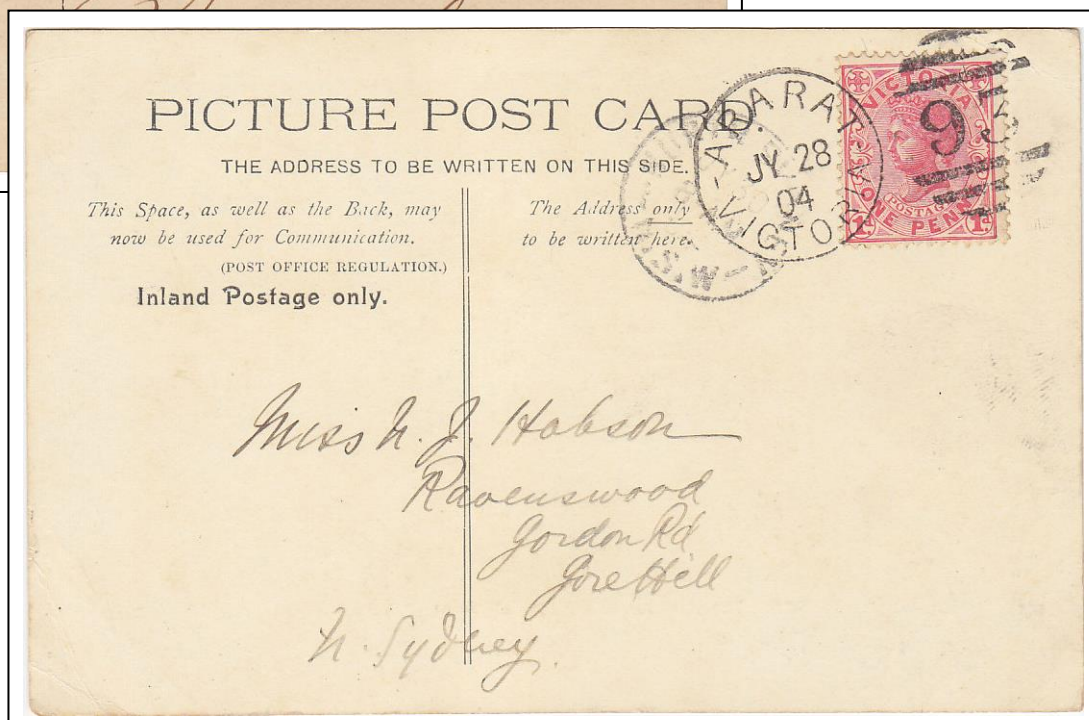 PICTURE POST CARD.
THE ADDRESS TO BE WRITTEN ON THIS SIDE.
This Space, as well as the Back, may
now be used for Communication.
(POST OFFICE REGULATION.)
Inland Postage only.
The Address only
to be written here.
ARARAT
JY 28
04
VICTORIA
N.S.W
VICTORIA
POSTAGE
ONE PENNY
1D 1D
9
Miss N. J. Hobson
Ravenswood
Gordon Rd
Gore Hill
N. Sydney.